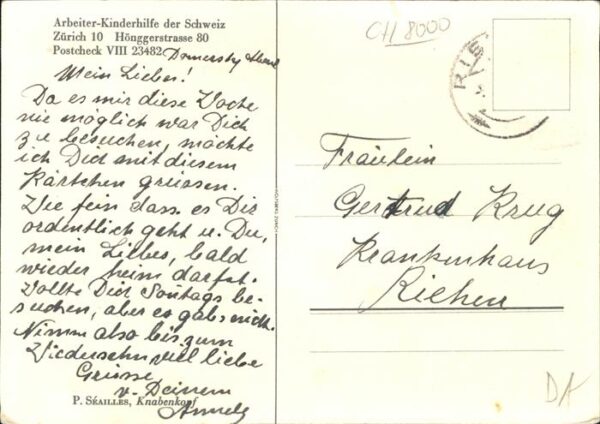 Arbeiter-Kinderhilfe der Schweiz
Zürich 10 Hönggerstrasse 80
Postcheck VIII 23482
Donnerstg Abend
Mein Liebes!
Da es mir diese Woche
nie möglich war Dich
zu besuchen, möchte
ich Dich mit diesem
Kärtchen grüssen.
Wie fein dass es Dir
ordentlich geht u. Du,
mein Liebes, bald
wieder heim darfst.
Wollte Dich Sontags be-
suchen, aber es gabs nicht.
Nimm also bis zum
Wiedersehn viel liebe
Grüsse
v. Deinem
P. Séailles, Knabenkopf
CH 8000
Fräulein
Gertrud Krug
Krankenhaus
Riehen
DA